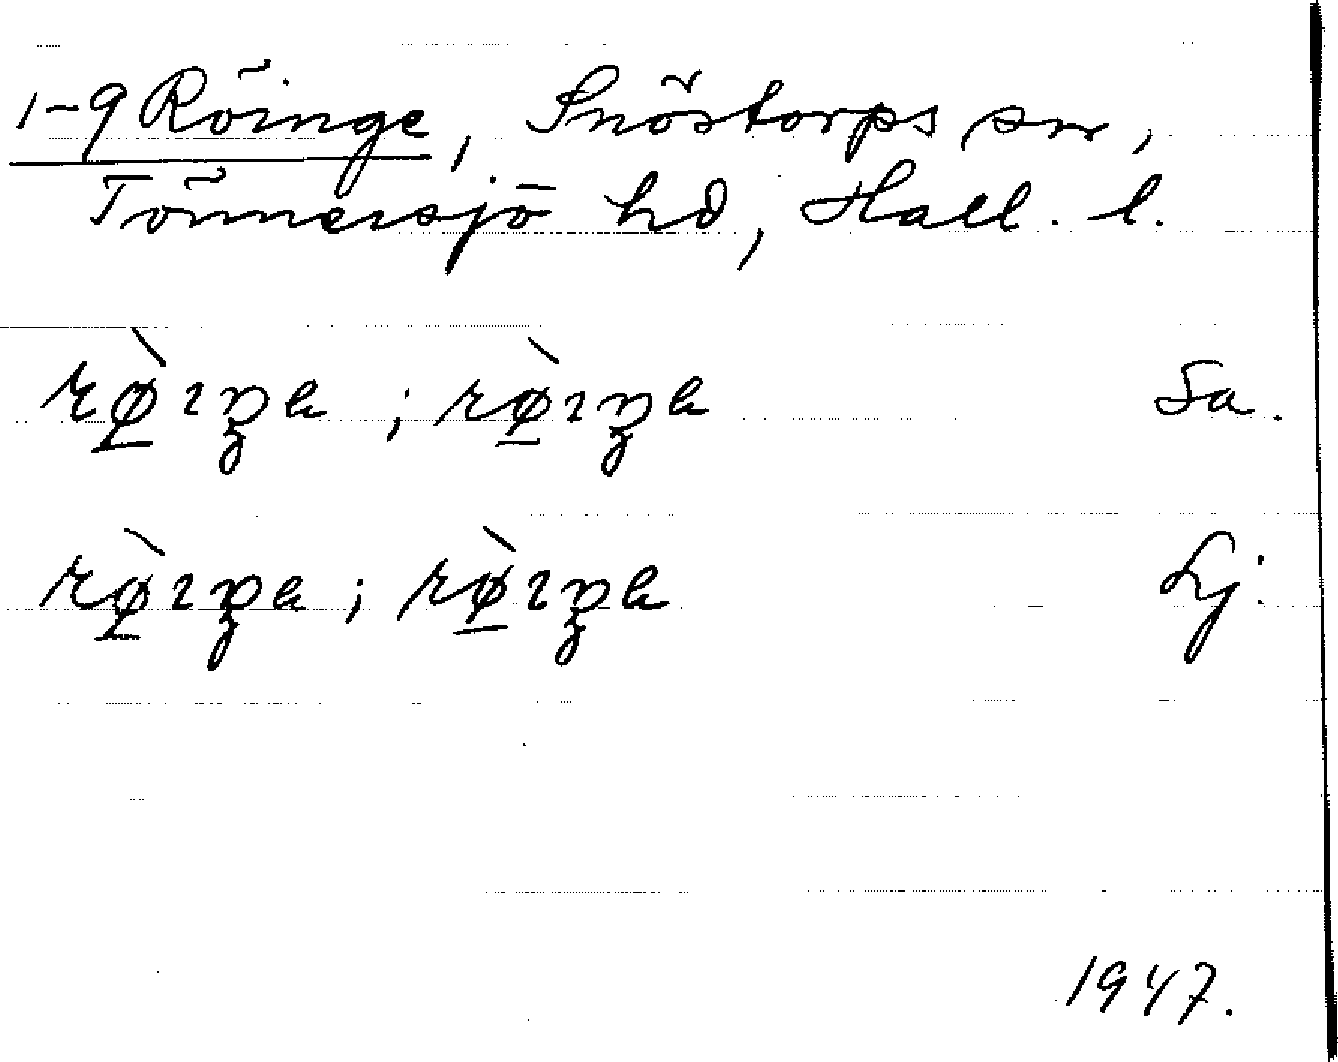 1-9 Röinge, Snöstorps sn,
Tönnersjö hd, Hall. l.
rø̲̀ıŋa ; rø̲̀ıŋa Sa.
rø̲̀ıŋa ; rø̲̀ıŋa Lj.
1947.